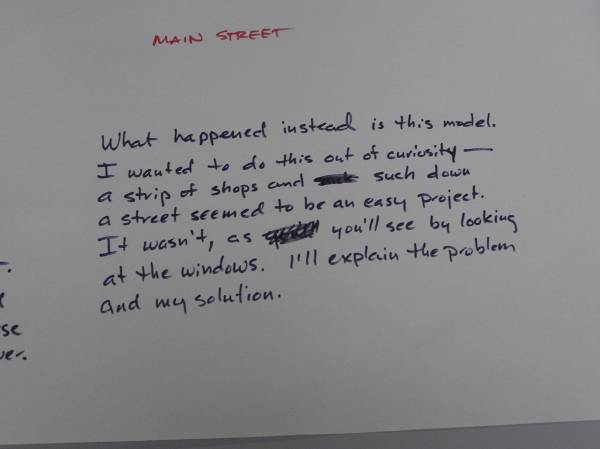 MAIN STREET
What happened instead is this model.
I wanted to do this out of curiosity —
a strip of shops and such down
a street seemed to be an easy project.
It wasn't, as you'll see by looking
at the windows. I'll explain the problem
and my solution.
se
er.